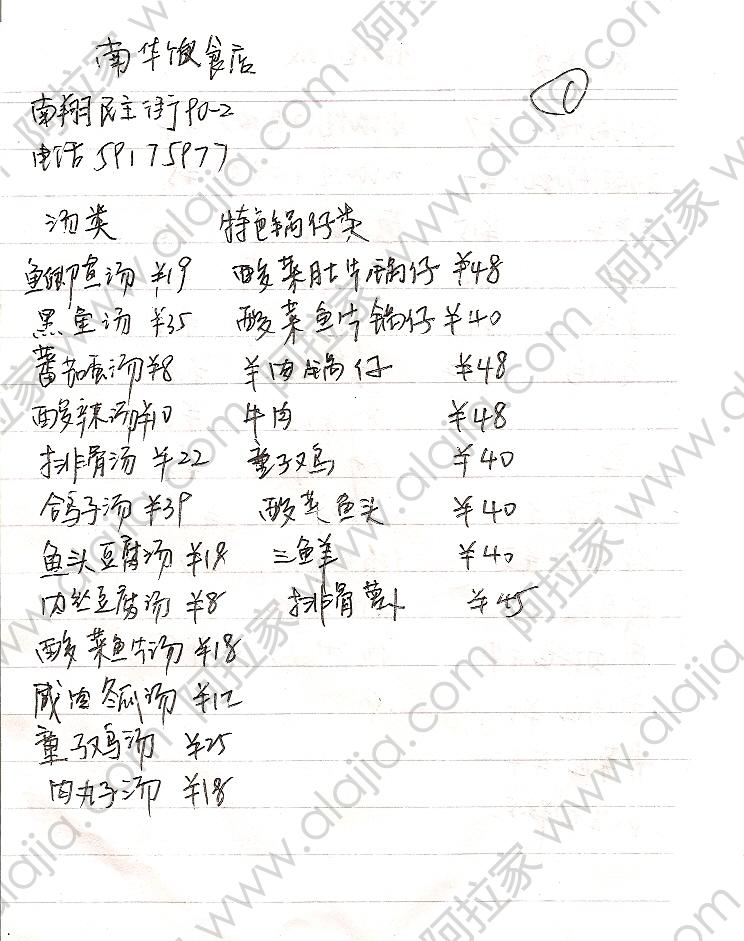 南华饮食店
①
南翔民主街90-2
电话 59175977
汤类 特色锅仔类
鱼鲫鱼汤 ¥19 酸菜肚片锅仔 ¥48
黑鱼汤 ¥35 酸菜鱼片锅仔 ¥40
蕃茄蛋汤 ¥8 羊肉锅仔 ¥48
酸辣汤 ¥10 牛肉 ¥48
排骨汤 ¥22 童子鸡 ¥40
鸽子汤 ¥39 酸菜鱼头 ¥40
鱼头豆腐汤 ¥18 三鲜 ¥40
肉丝豆腐汤 ¥8 排骨萝卜 ¥45
酸菜鱼片汤 ¥18
咸肉冬瓜汤 ¥12
童子鸡汤 ¥25
肉丸子汤 ¥18
阿拉家 www.alajia.com